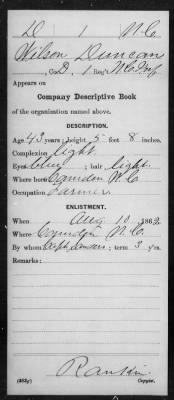 D | 1 | N.C.
Wilson Duncan
, Co. D, 1 Reg't N.C. Inf.
Appears on
Company Descriptive Book
of the organization named above.
DESCRIPTION.
Age 43 years; height 5 feet 8 inches.
Complexion light
Eyes blue; hair light.
Where born Camden N.C.
Occupation Farmer.
ENLISTMENT.
When Aug 10, 1862.
Where Camden N.C.
By whom Capt. ; term 3 y'rs.
Remarks:
Rankin
(383g) Copyist.